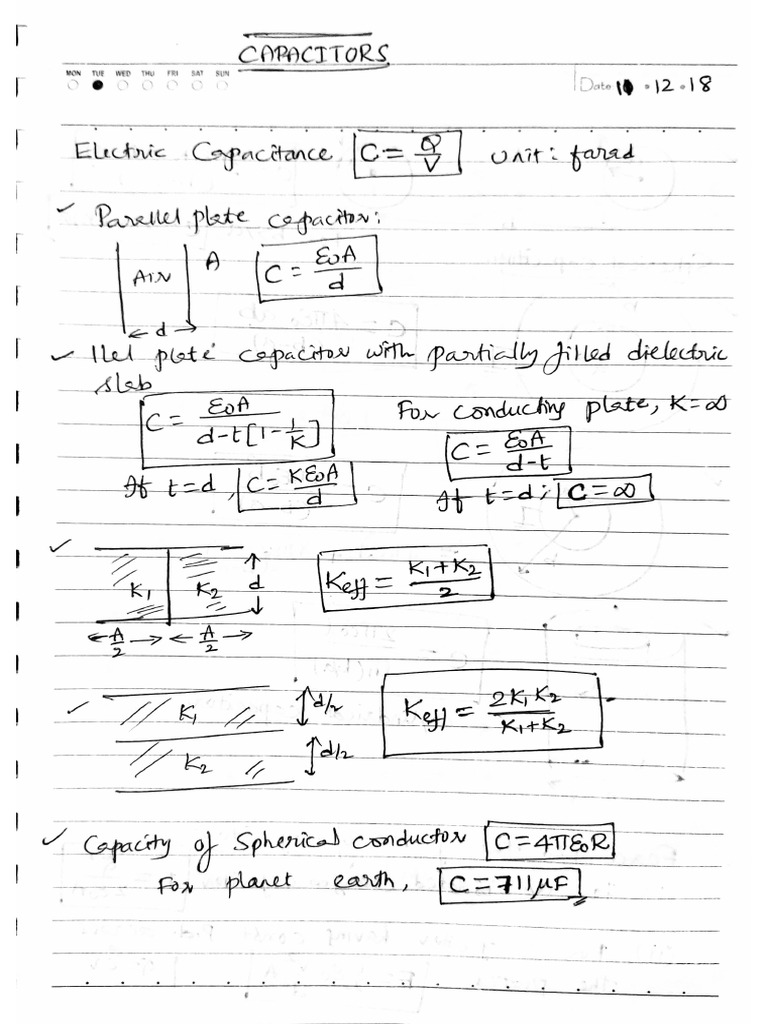 CAPACITORS
MON TUE WED THU FRI SAT SUN
Date 10.12.18
Electric Capacitance C = Q/V unit: farad
✓ Parallel plate capacitor:
Air A C = ε0A/d
d
✓ llel plate capacitor with partially filled dielectric
slab
C = ε0A/(d-t[1-1/K]) For conducting plate, K=∞
C = ε0A/(d-t)
If t=d, C = Kε0A/d If t=d; C=∞
✓ K1 K2 d Keff = (K1+K2)/2
A/2 A/2
✓ K1 d/2 Keff = 2K1K2/(K1+K2)
K2 d/2
✓ Capacity of Spherical conductor C=4πε0R
For planet earth, C=711μF